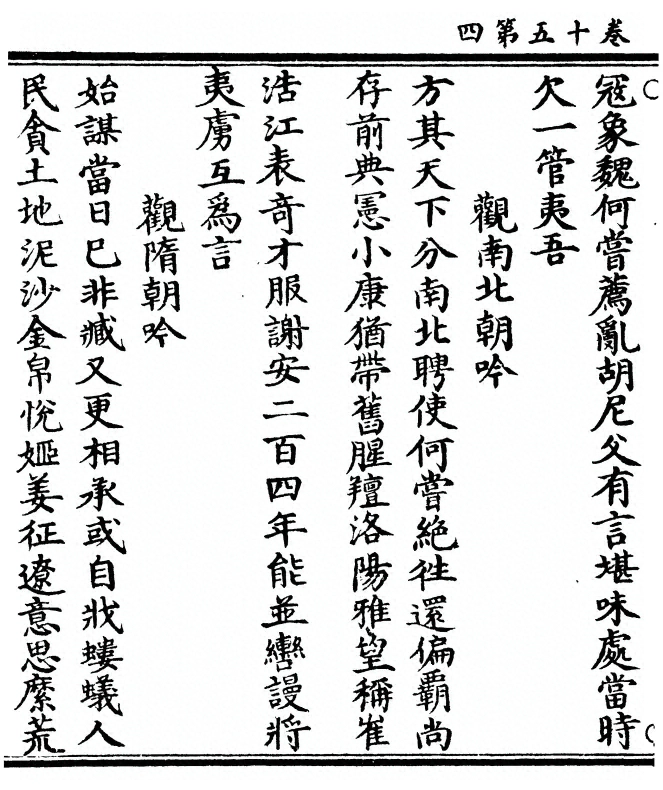 卷十五第四
冦象魏何嘗薦亂胡尼父有言堪味處當時
欠一管夷吾
觀南北朝吟
方其天下分南北聘使何嘗絶徃還偏覇尚
存前典憲小康猶帶舊腥羶洛陽雅望稱崔
浩江表奇才服謝安二百四年能並轡謾將
夷虜互爲言
觀隋朝吟
始謀當日巳非臧又更相承或自戕螻蟻人
民貪土地泥沙金帛悅姬姜征遼意思縻荒